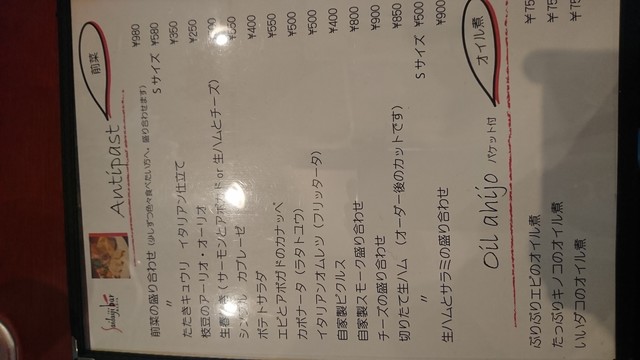 Antipast 前菜
前菜の盛り合わせ(少しずつ色々食べたい方へ。盛り合わせます) ¥980
〃 Sサイズ ¥580
たたきキュウリ イタリアン仕立て ¥350
枝豆のアーリオ・オーリオ ¥250
生春巻き(サーモンとアボカド or 生ハムとチーズ)
シンプル カプレーゼ
ポテトサラダ ¥400
エビとアボガドのカナッペ ¥550
カポナータ(ラタトユウ) ¥500
イタリアンオムレツ(フリッタータ) ¥500
自家製ピクルス ¥400
自家製スモーク盛り合わせ ¥800
チーズの盛り合わせ ¥900
切りたて生ハム (オーダー後のカットです) ¥850
〃 Sサイズ ¥500
生ハムとサラミの盛り合わせ ¥900
Oil ahijo バケット付 オイル煮
ぷりぷりエビのオイル煮 ¥75
たっぷりキノコのオイル煮 ¥75
いいダコのオイル煮 ¥75